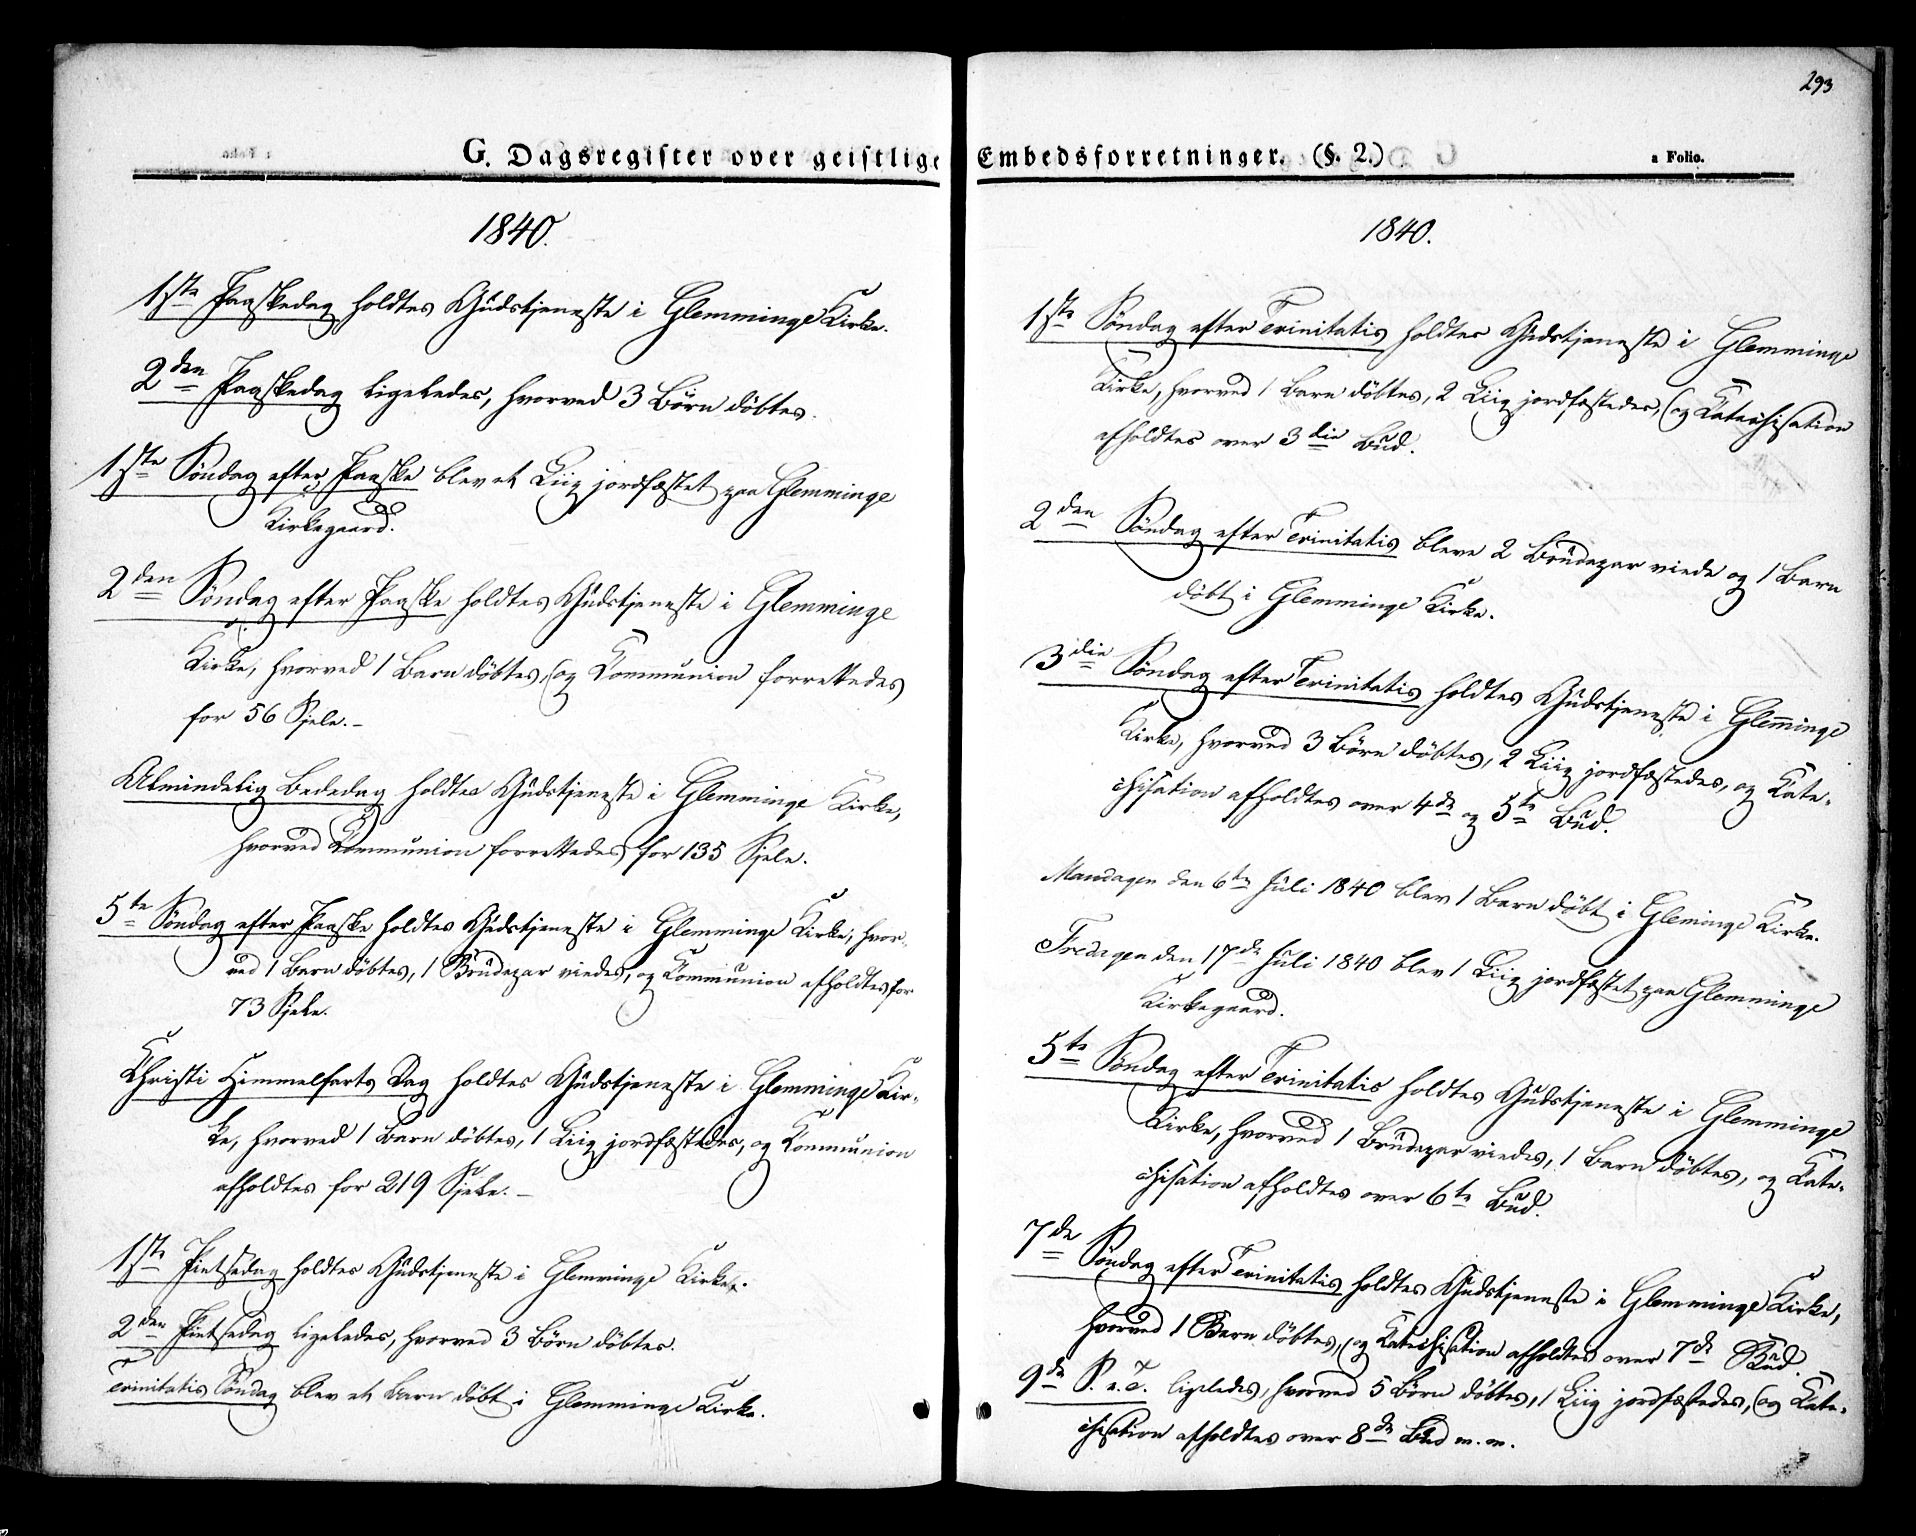 293
G. Dagsregister over geistlige Embedsforretninger. (§. 2.)
a Folio.
1840.
1ste Paaskedag holdtes Gudstjeneste i Glemminge Kirke.
2den Paaskedag ligeledes, hvorved 3 Börn döbtes.
1ste Söndag efter Paaske blev et Liig jordfæstet paa Glemminge
Kirkegaard.
2den Söndag efter Paaske holdtes Gudstjeneste i Glemminge
Kirke, hvorved 1 Barn döbtes, og Communion forrettedes
for 56 Sjele.-
Almindelig Bededag holdtes Gudstjeneste i Glemminge Kirke,
hvorved Communion forrettedes for 135 Sjele.
5te Söndag efter Paaske holdtes Gudstjeneste i Glemminge Kirke, hvor-
ved 1 Barn döbtes, 1 Brudepar viedes, og Kommunion afholdtes for
73 Sjele.
Christi Himmelfarts Dag holdtes Gudstjeneste i Glemminge Kir-
ke, hvorved 1 Barn döbtes, 1 Liig jordfæstedes, og Kommunion
afholdtes for 219 Sjele.-
1ste Pintsedag holdtes Gudstjeneste i Glemminge Kirke.
2den Pintsedag ligeledes, hvorved 3 Börn döbtes.
Trinitatis Söndag blev et Barn döbt i Glemminge Kirke.
1840.
1ste Söndag efter Trinitatis holdtes Gudstjeneste i Glemminge
Kirke, hvorved 1 Barn döbtes, 2 Liig jordfæstedes, og Katechisation
afholdtes over 3die Bud.
2den Söndag efter Trinitatis bleve 2 Brudepar viede og 1 Barn
döbt i Glemminge Kirke.
3die Söndag efter Trinitatis holdtes Gudstjeneste i Glem̅inge
Kirke, hvorved 3 Börn döbtes, 2 Liig jordfæstedes, og Kate-
chisation afholdtes over 4de og 5te Bud.
Mandagen den 6te Juli 1840 blev 1 Barn döbt i Gleminge Kirke.
Fredagen den 17de Juli 1840 blev 1 Liig jordfæstet paa Glemminge
Kirkegaard.
5te Söndag efter Trinitatis holdtes Gudstjeneste i Glemminge
Kirke, hvorved 1 Brudepar viedes, 1 Barn döbtes, og Kate-
chisation afholdtes over 6te Bud.
7de Söndag efter Trinitatis holdtes Gudstjeneste i Glemminge Kirke,
hvorved 1 Barn döbtes, og Katechisation afholdtes over 7de Bud.
9de S. e. T. ligeledes, hvorved 5 Börn döbtes, 1 Liig jordfæstedes, og Kate-
chisation afholdtes over 8de Bud m. m.